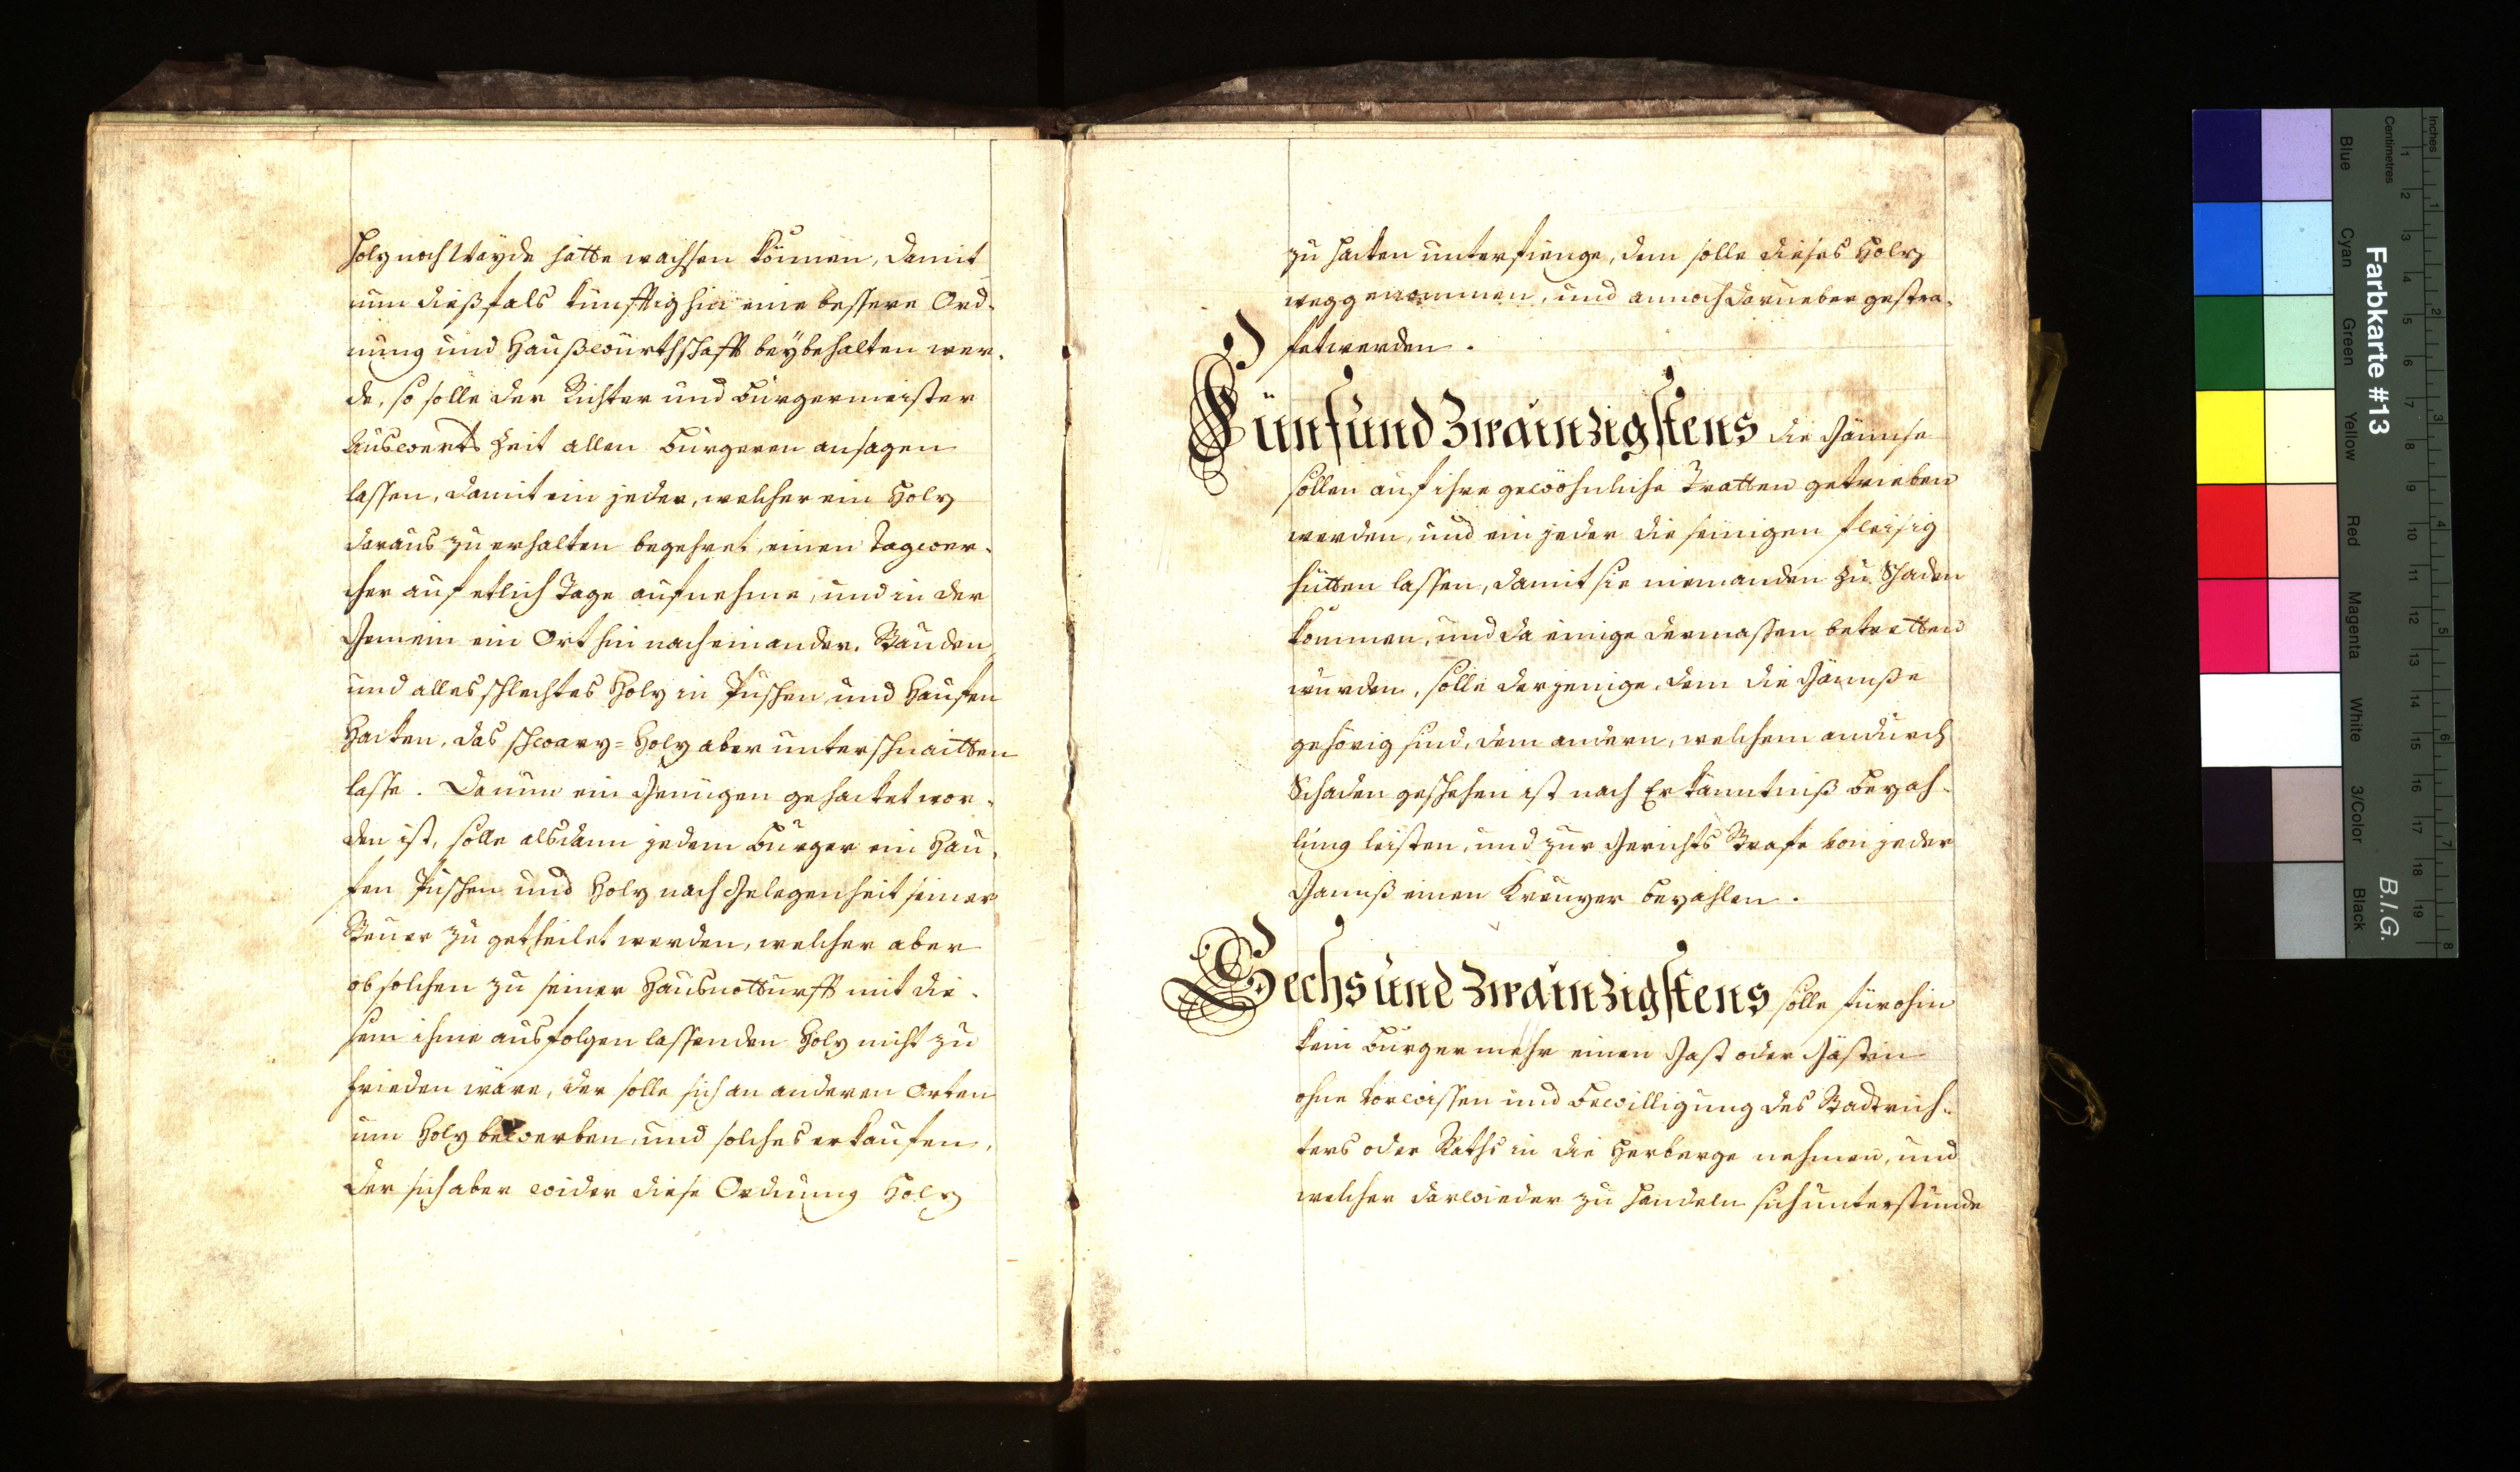 Holz noch Wayde hätte wachsen können, damit
nun dießfals künfftighin eine bessere Ord-
nung und Haußwürthschafft beybehalten wer-
de, so solle der Richter und Burgermeister
Auswerts Zeit allen Burgeren ansagen
lassen, damit ein jeder, welcher ein Holz
daraus zu erhalten begehret, einen Tagwer-
cher auf etlich Tage aufnehme, und in der
Gemein ein Ort hin nach einander, Stauden
und alles schlechtes Holz in Püschen, und Haufen
Hacken, das schwarz=Holz aber unterschnaitten
lasse. Da nun ein Genügen gehacket wor-
den ist, solle alsdann jedem Burger ein Hau-
fen Püschen und Holz nach Gelegenheit seiner
Steuer zu getheilet werden, welcher aber
ob solchen zu seiner Hausnotturfft mit die-
sem ihme ausfolgen lassenden Holz nicht zu
frieden wäre, der solle sich an anderen Orten
um Holz bewerben, und solches erkaufen,
der sich aber wider diese Ordnung Holz
zu hacken unterfienge, dem solle dieses Holz
weggenommen, und annoch darueber gestra-
fet werden.
Fünfund Zwainzigstens die Gännse
sollen auf ihre gewöhnliche Tratten getrieben
werden, und ein jeder die seinigen fleisig
hütten lassen, damit sie niemanden zu Schaden
kommen, und da einige dermassen betretten
wurden, solle derjenige, dem die Gännße
gehörig sind, dem andern, welchem andurch
Schaden geschehen ist nach Erkänntniß Bezah-
lung leisten, und zur Gerichts Strafe von jeder
Gannß einen Kreuzer bezahlen.
Sechsund Zwainzigstens solle fürohin
kein Burger mehr einen Gast oder Gästin
ohne Vorwissen und Bewilligung des Stadtrich-
ters oder Raths in die Herberge nehmen, und
welcher darwieder zu handeln sich unterstunde
Inches
Centimetres
1 2 3 4 5 6 7 8
1 2 3 4 5 6 7 8 9 10 11 12 13 14 15 16 17 18 19
Farbkarte #13
B.I.G.
Blue
Cyan
Green
Yellow
Red
Magenta
White
3/Color
Black